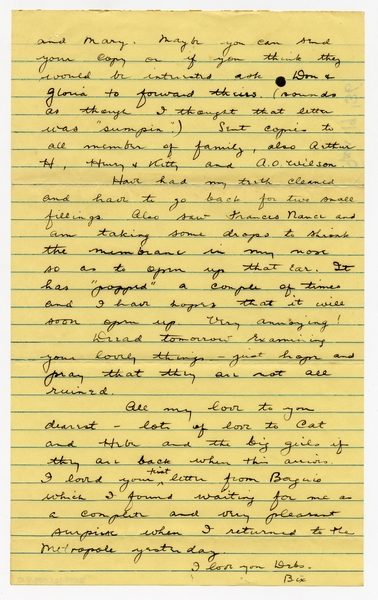 and Mary. Maybe you can send
your copy or if you think they
would be interested ask Don &
Gloria to forward theirs. (sounds
as though I thought that letter
was "sumpin".) Sent copies to
all member of family, also Arthur
H, Henry & Kitty and A.O. Wilson
Have had my teeth cleaned
and have to go back for two small
fillings. Also saw Frances Nance and
am taking some drops to shrink
the membrane in my nose
so as to open up that ear. It
has "popped" a couple of times
and I have hopes that it will
soon open up Very annoying!
Dread tomorrow examining
your lovely things – just hope and
pray that they are not all
ruined.
All my love to you
dearest – lots of love to Cat
and Hebe and the big girls if
they are back when this arrives.
I loved your first letter from Baguio
which I found waiting for me as
a complete and very pleasant
surprise when I returned to the
Metropole yesterday.
I love you Debs.
Bix